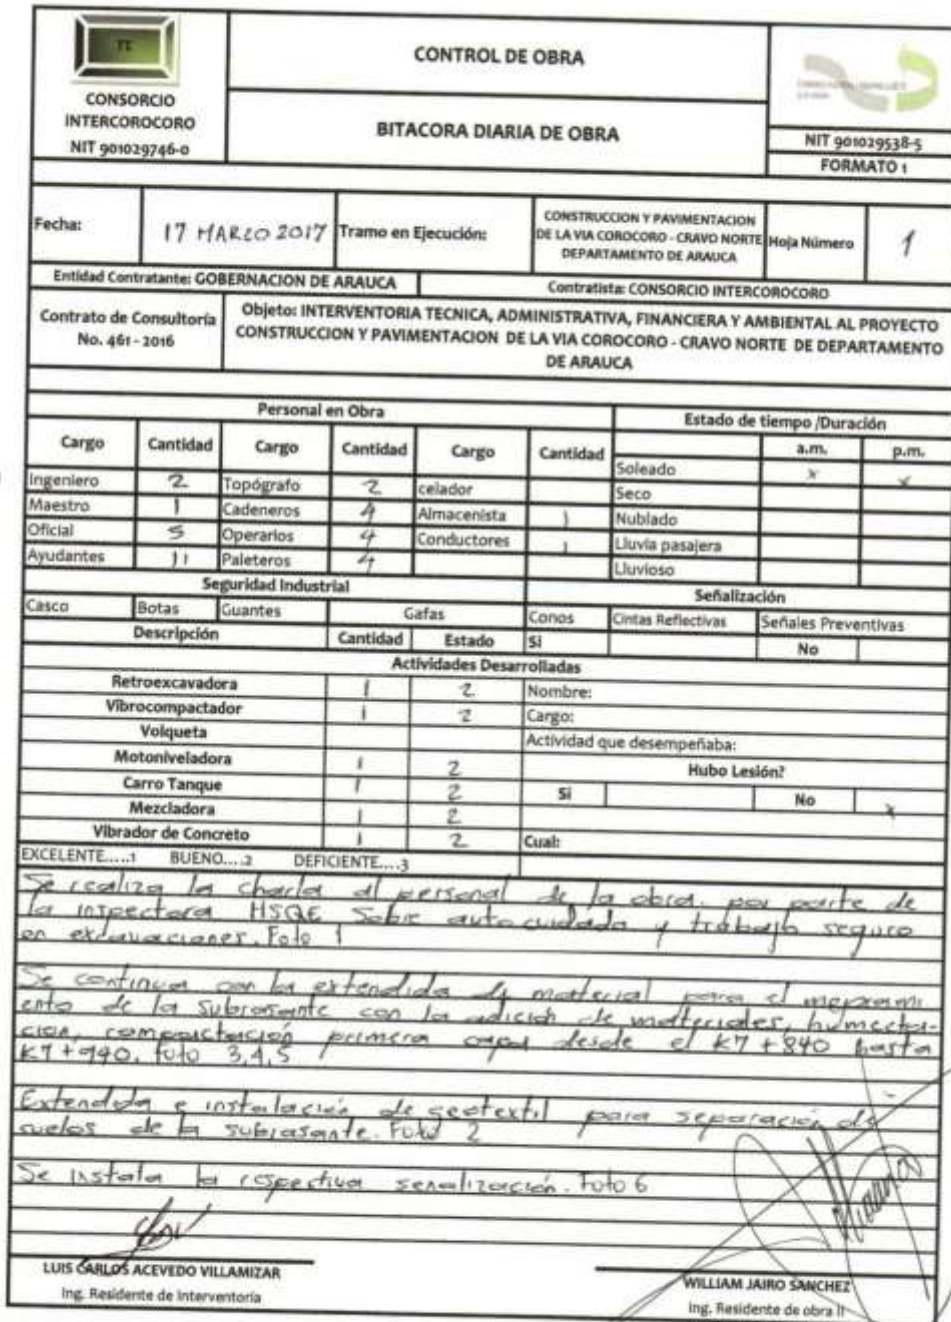 TC
CONSORCIO
INTERCOROCORO
NIT 901029746-0
CONTROL DE OBRA
BITACORA DIARIA DE OBRA
NIT 901029538-5
FORMATO 1
Fecha: 17 MARZO 2017 Tramo en Ejecución: CONSTRUCCION Y PAVIMENTACION DE LA VIA COROCORO - CRAVO NORTE DEPARTAMENTO DE ARAUCA Hoja Número 1
Entidad Contratante: GOBERNACION DE ARAUCA Contratista: CONSORCIO INTERCOROCORO
Contrato de Consultoría No. 461 - 2016
Objeto: INTERVENTORIA TECNICA, ADMINISTRATIVA, FINANCIERA Y AMBIENTAL AL PROYECTO
CONSTRUCCION Y PAVIMENTACION DE LA VIA COROCORO - CRAVO NORTE DE DEPARTAMENTO
DE ARAUCA
Personal en Obra Estado de tiempo /Duración
Cargo Cantidad Cargo Cantidad Cargo Cantidad a.m. p.m.
Ingeniero 2 Topógrafo 2 celador Soleado x x
Maestro 1 Cadeneros 4 Almacenista 1 Seco
Oficial 5 Operarios 4 Conductores 1 Nublado
Ayudantes 11 Paleteros 4 Lluvia pasajera
Lluvioso
Seguridad Industrial Señalización
Casco Botas Guantes Gafas Conos Cintas Reflectivas Señales Preventivas
Descripción Cantidad Estado Si No
Actividades Desarrolladas
Retroexcavadora 1 2 Nombre:
Vibrocompactador 1 2 Cargo:
Volqueta Actividad que desempeñaba:
Motoniveladora 1 2 Hubo Lesión?
Carro Tanque 1 2 Si No x
Mezcladora 1 2
Vibrador de Concreto 1 2 Cual:
EXCELENTE.....1 BUENO....2 DEFICIENTE....3
Se realiza la charla al personal de la obra. por parte de
la inspectora HSQE Sobre autocuidado y trabajo seguro
en excavaciones. Foto 1
Se continua con la extendida de material para el mejorami
ento de la subrasante con la adición de materiales, humecta-
cion, compactación primera capa desde el K7+840 hasta
K7+990. foto 3,4,5
Extendida e instalación de geotextil para separación de
suelos de la subrasante. Foto 2
Se instala la respectiva senalización. Foto 6
LUIS CARLOS ACEVEDO VILLAMIZAR
Ing. Residente de Interventoría
WILLIAM JAIRO SANCHEZ
Ing. Residente de obra II